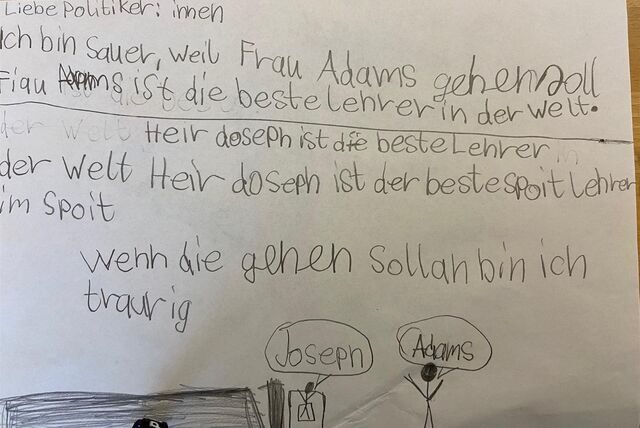 Liebe Politiker: innen
Ich bin Sauer, weil Frau Adams gehen soll
Frau Adams ist die beste lehrer in der welt.
der welt Heir doseph ist die beste Lehrer in
der Welt Heir doseph ist der beste spoit lehrer
im Spoit
wenn die gehen Sollan bin ich
traurig
Joseph
Adams